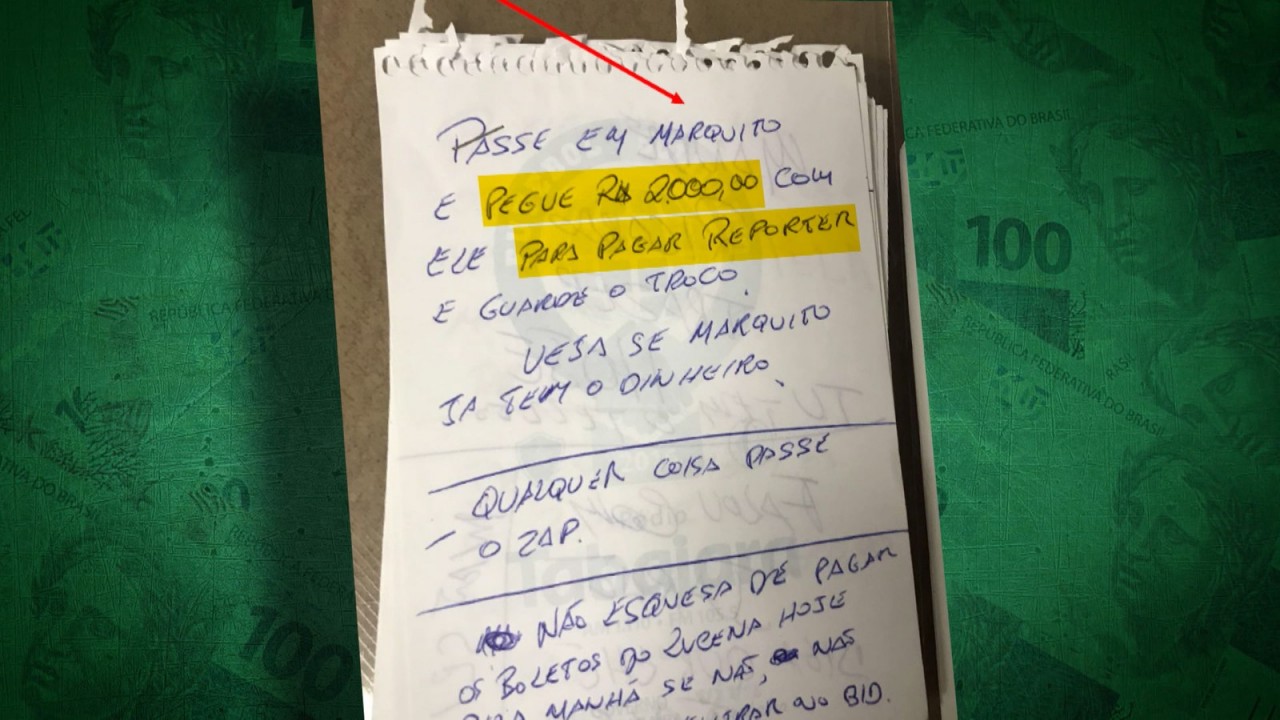 PASSE EM MARQUITO
E PEGUE R$ 2.000,00 COM
ELE PARA PAGAR REPORTER
E GUARDE O TROCO.
VEJA SE MARQUITO
JA TEM O DINHEIRO.
QUALQUER COISA PASSE
O ZAP.
NÃO ESQUESA DE PAGAR
OS BOLETOS DO LUCENA HOJE
MANHÃ SE NÃO, NÃO
ENTRAR NO BID.
CA FEDERATIVA DO BRASIL
100
REPÚBLICA FEDERATIVA
REPÚBLICA FEDERATIVA DO BRASIL
100